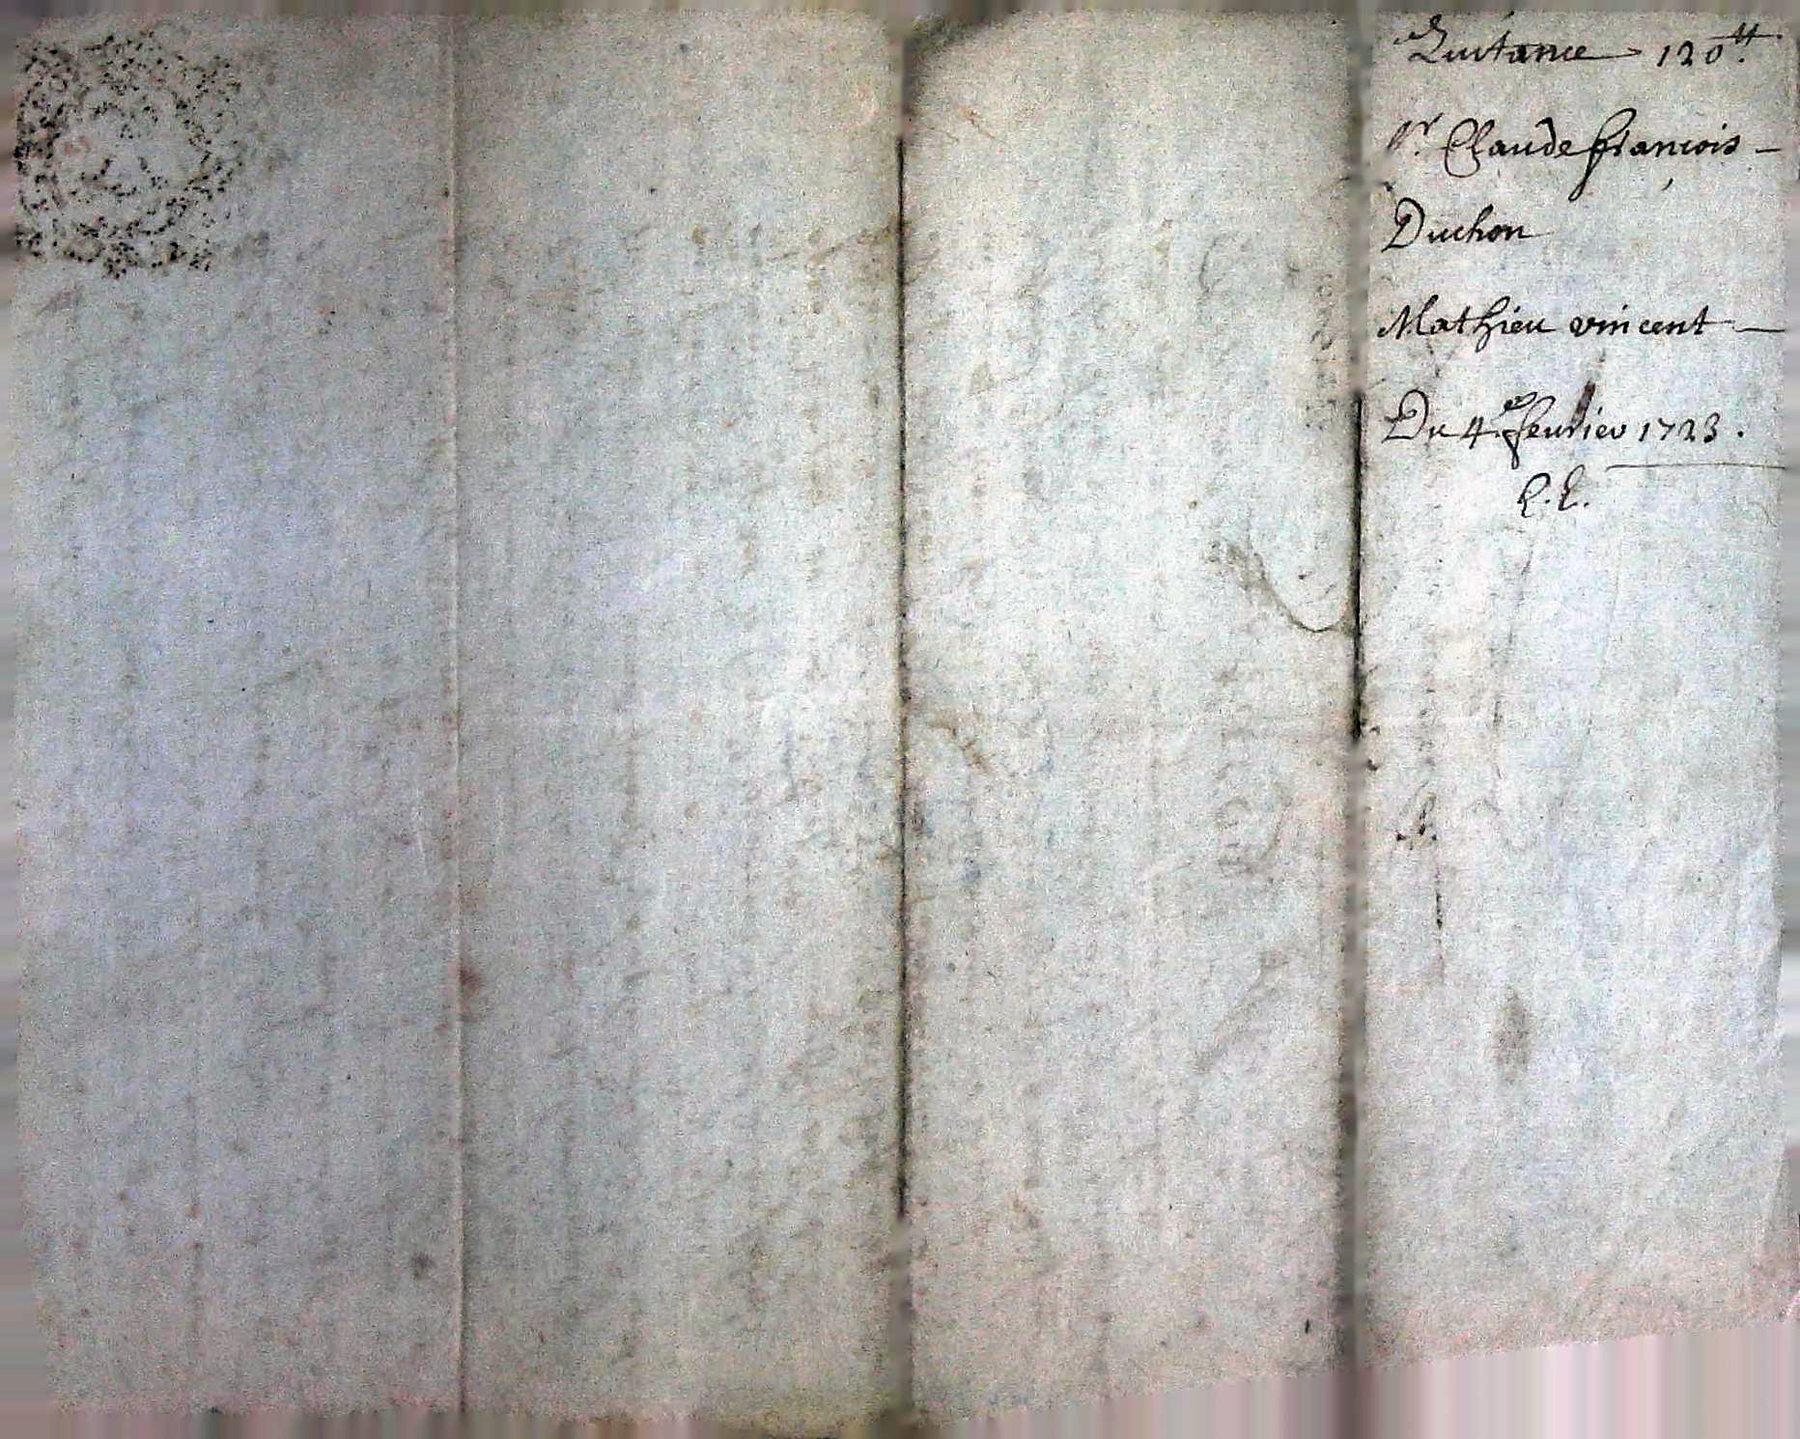 Quitance 120ᵗᵗ.
Pr. Claude françois –
Duchon
Mathieu vincent –
Du 4e feurier 1723.
C. E.